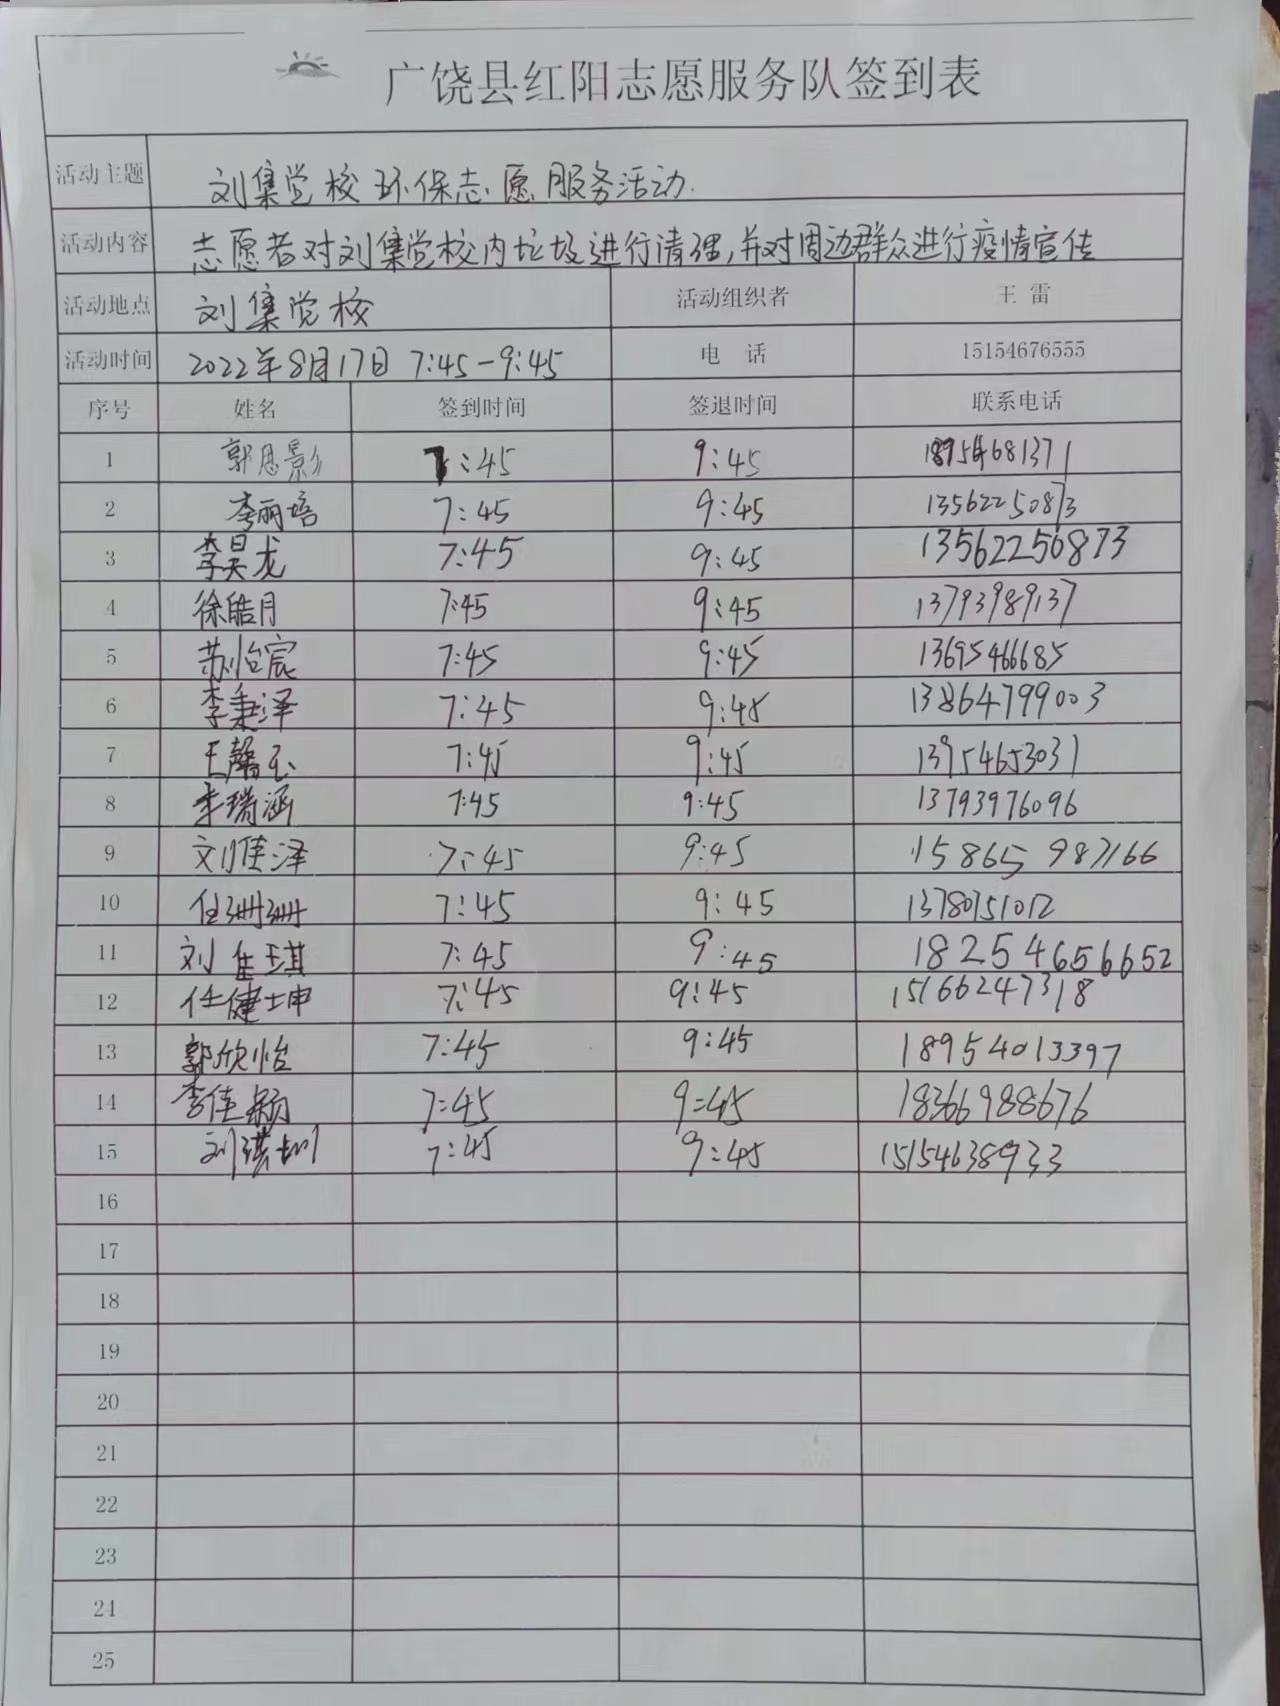 广饶县红阳志愿服务队签到表
活动主题 刘集学校环保志愿服务活动.
活动内容 志愿者对刘集学校内垃圾进行清理,并对周边群众进行疫情宣传
活动地点 刘集学校 活动组织者 王雷
活动时间 2022年8月17日 7:45-9:45 电 话 15154676555
序号 姓名 签到时间 签退时间 联系电话
1 郭恩影 7:45 9:45 18954681371
2 李丽培 7:45 9:45 13562250873
3 李昊龙 7:45 9:45 13562250873
4 徐皓月 7:45 9:45 13793989137
5 苏怡宸 7:45 9:45 13695466685
6 李秉泽 7:45 9:45 13864799003
7 王馨玉 7:45 9:45 13954653031
8 李瑞涵 7:45 9:45 13793976096
9 刘佳泽 7:45 9:45 15865987166
10 任珊珊 7:45 9:45 13780751012
11 刘佳琪 7:45 9:45 18254656652
12 任健坤 7:45 9:45 15166247318
13 郭欣怡 7:45 9:45 18954013397
14 李佳颖 7:45 9:45 18366988676
15 刘淇圳 7:45 9:45 15154638933
16
17
18
19
20
21
22
23
24
25